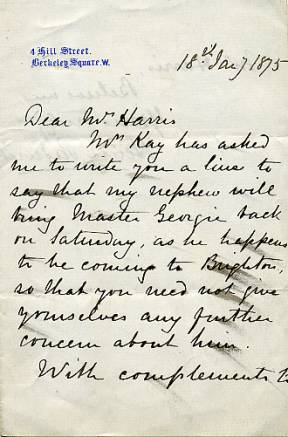 4 Hill Street.
Berkeley Square. W.
18th Jany 1875
Dear Mr Harris
Mrs Kay has asked
me to write you a line to
say that my nephew will
bring Master Georgie back
on Saturday, as he happens
to be coming to Brighton,
so that you need not give
yourselves any further
concern about him.
With complements to